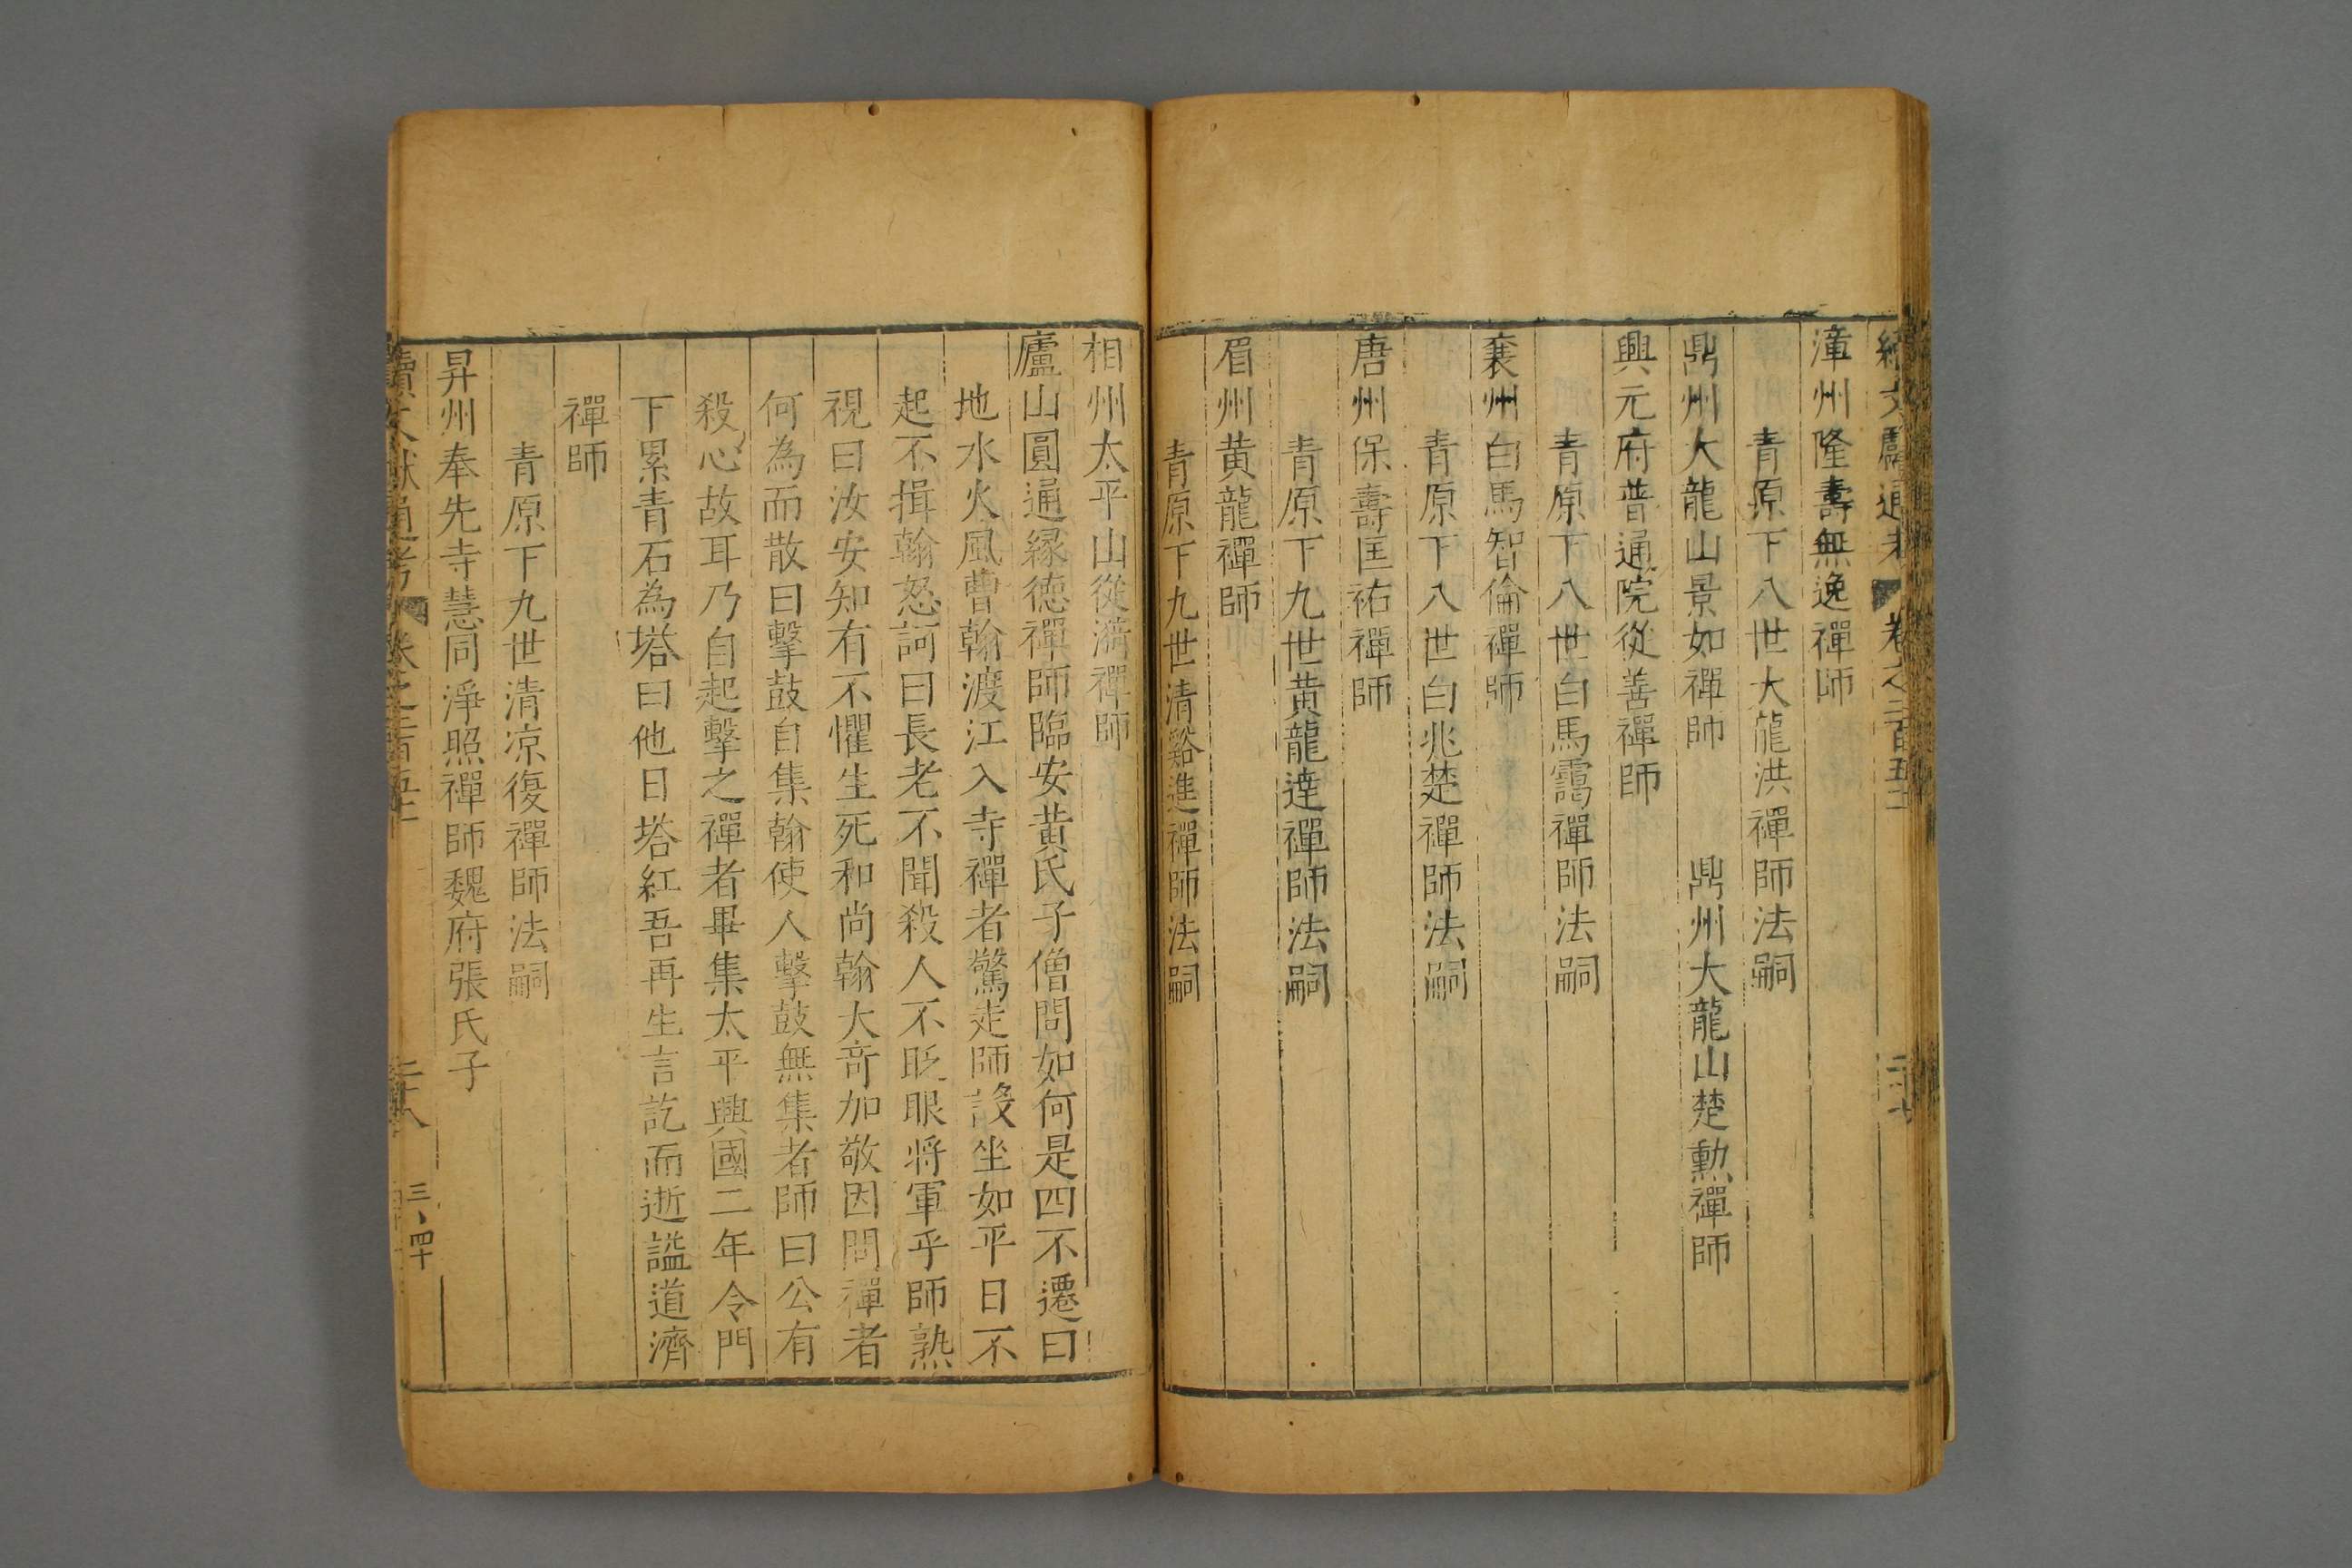 續文獻通考 卷之二百五十二 二十七
漳州隆壽無逸禪師
青原下八世大龍洪禪師法嗣
鼎州大龍山景如禪師 鼎州大龍山楚勲禪師
興元府普通院從善禪師
青原下八世白馬靄禪師法嗣
襄州白馬智倫禪師
青原下八世白兆楚禪師法嗣
唐州保壽匡祐禪師
青原下九世黄龍達禪師法嗣
眉州黄龍禪師
青原下九世清谿進禪師法嗣
相州太平山從漪禪師
廬山圓通縁德禪師臨安黄氏子僧問如何是四不遷曰
地水火風曹翰渡江入寺禪者驚走師設坐如平日不
起不揖翰怒訶曰長老不聞殺人不眨眼將軍乎師熟
視曰汝安知有不懼生死和尚翰大竒加敬因問禪者
何為而散曰擊鼓自集翰使人擊鼓無集者師曰公有
殺心故耳乃自起擊之禪者畢集太平興國二年令門
下累青石為塔曰他日塔紅吾再生言訖而逝諡道濟
禪師
青原下九世清凉復禪師法嗣
昇州奉先寺慧同淨照禪師魏府張氏子
續文獻通考 卷之二百五十二 二十八 三、四十